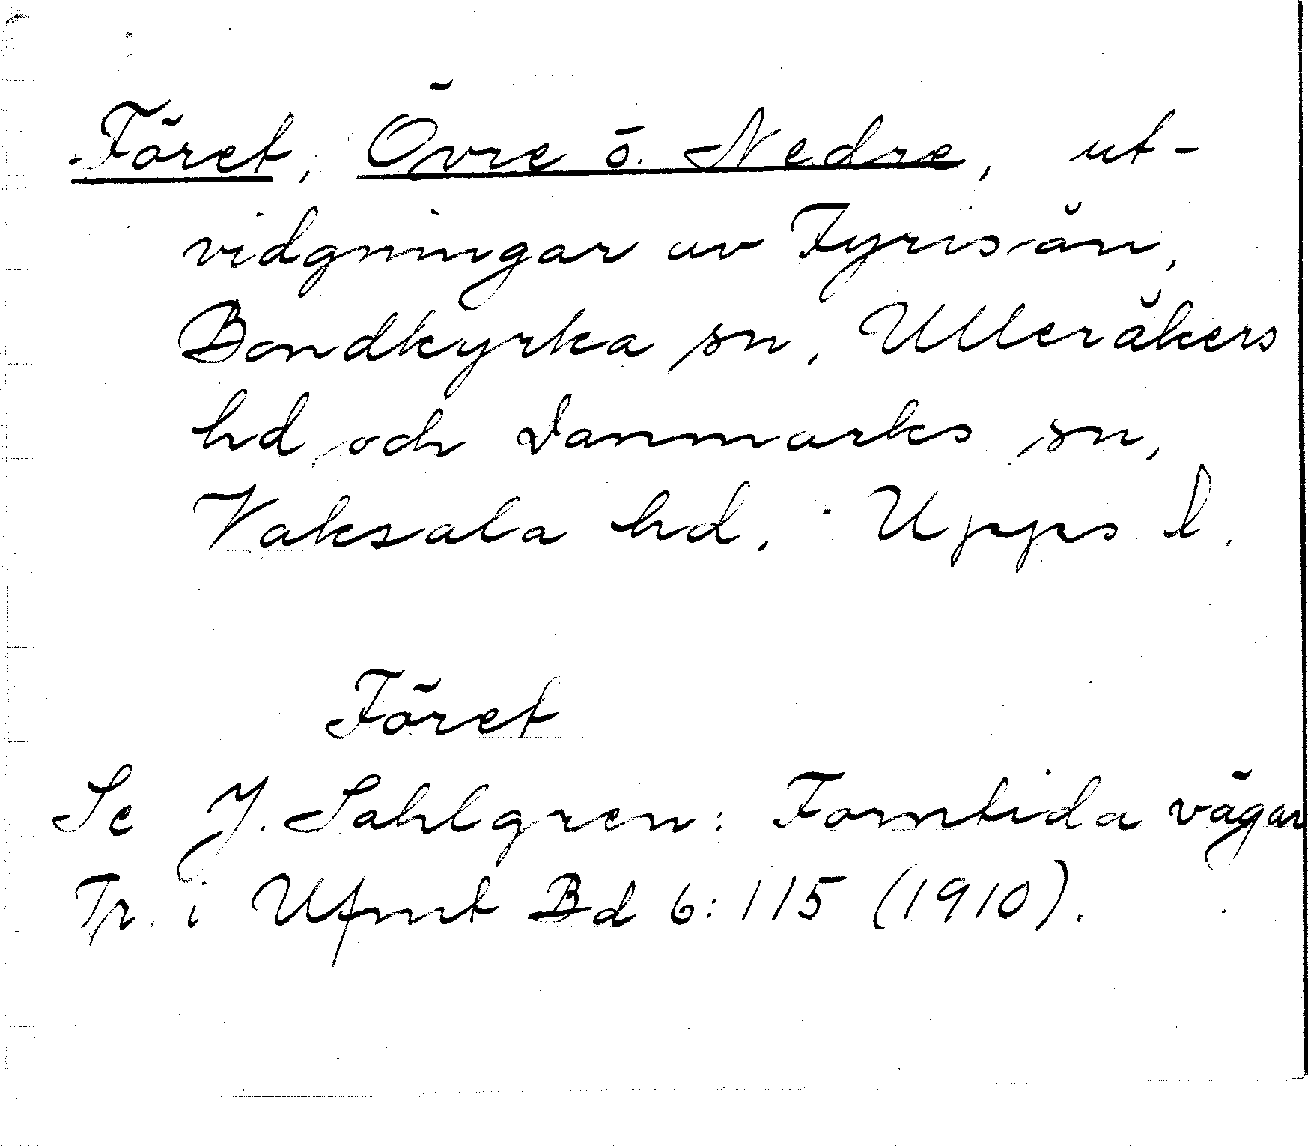 Föret, Övre o. Nedre, ut-
vidgningar av Fyrisån,
Bondkyrka sn, Ulleråkers
hd och Danmarks sn,
Vaksala hd, Upps l.
Föret
Se J. Sahlgren: Forntida vägar
Tr. i Ufmt Bd 6:115 (1910).